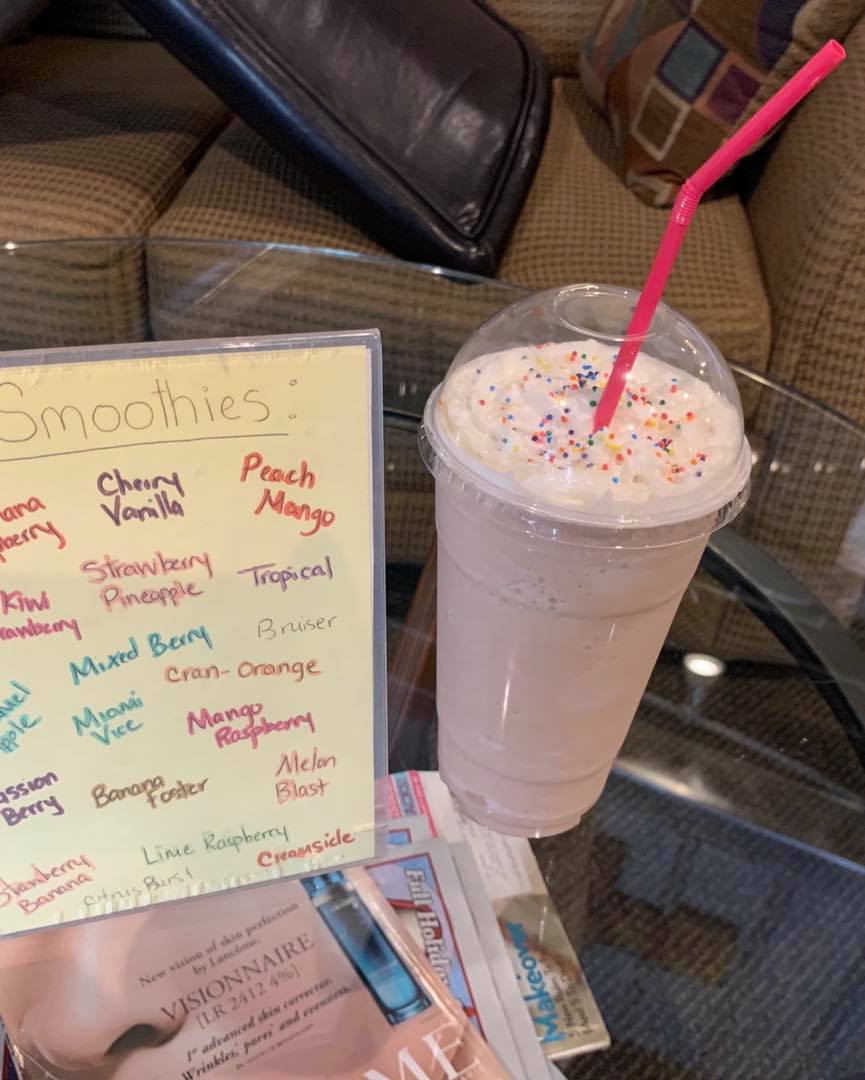 Smoothies:
Cherry
Vanilla
Peach
Mango
Strawberry
Pineapple
Tropical
Kiwi
Mixed Berry
Bruiser
Cran-Orange
Miami
Vice
Mango
Raspberry
Berry
Banana
Foster
Melon
Blast
Lime Raspberry
Creamsicle
Stranberry
Banana
Citrus Burst
New vision of skin perfection
by Lancôme.
VISIONNAIRE
[LR 2412 4%]
1st advanced skin corrector.
Wrinkles, pores and evenness,
ME
Full Holiday
Makeover